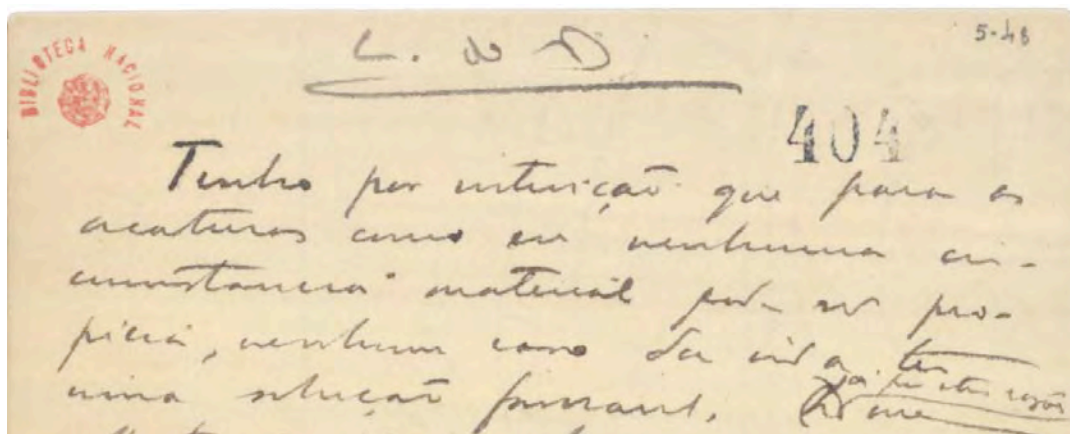 5-48
L. do D
BIBLIOTECA NACIONAL
404
Tenho por intuição que para as
creaturas como eu nenhuma cir-
cumstancia material pode ser pro-
picia, nenhum caso da vida ter
uma solução favoravel. Já por outras razões
me